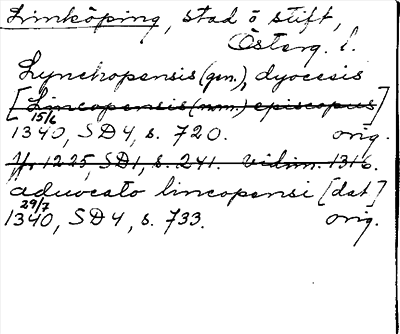 Linköping, stad o stift,
Österg. l.
Lynchopensis (gen.), dyocesis
[Lincopensis (nom.) episcopus]
15/6
1340, SD4, s. 720. orig.
Yr. 1225, SD1, s. 241. vidim. 1316.
aduocato lincopensi [dat]
29/7
1340, SD4, s. 733. orig.